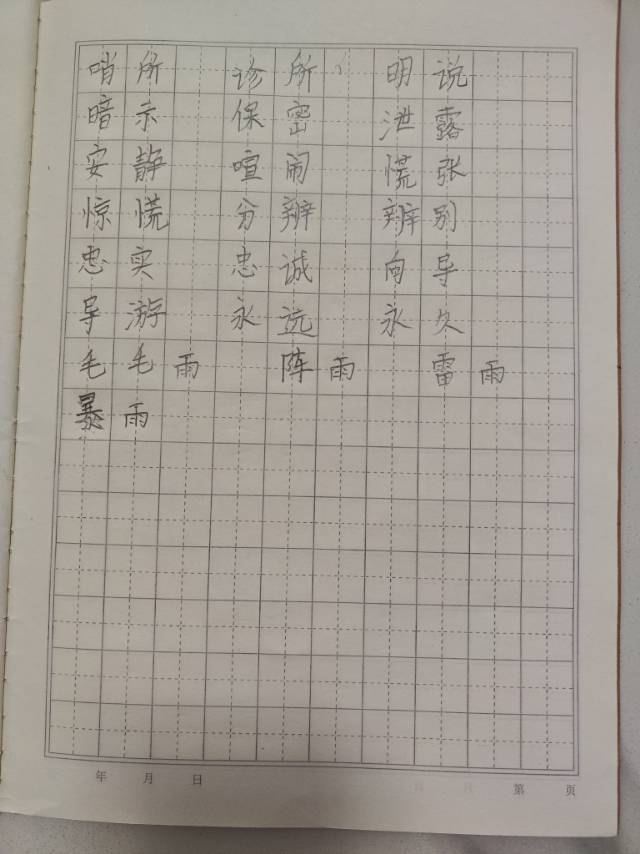 哨所 诊所 明说
暗示 保密 泄露
安静 喧闹 慌张
惊慌 分辨 辨别
忠实 忠诚 向导
导游 永远 永久
毛毛雨 阵雨 雷雨
暴雨
年 月 日 第 页